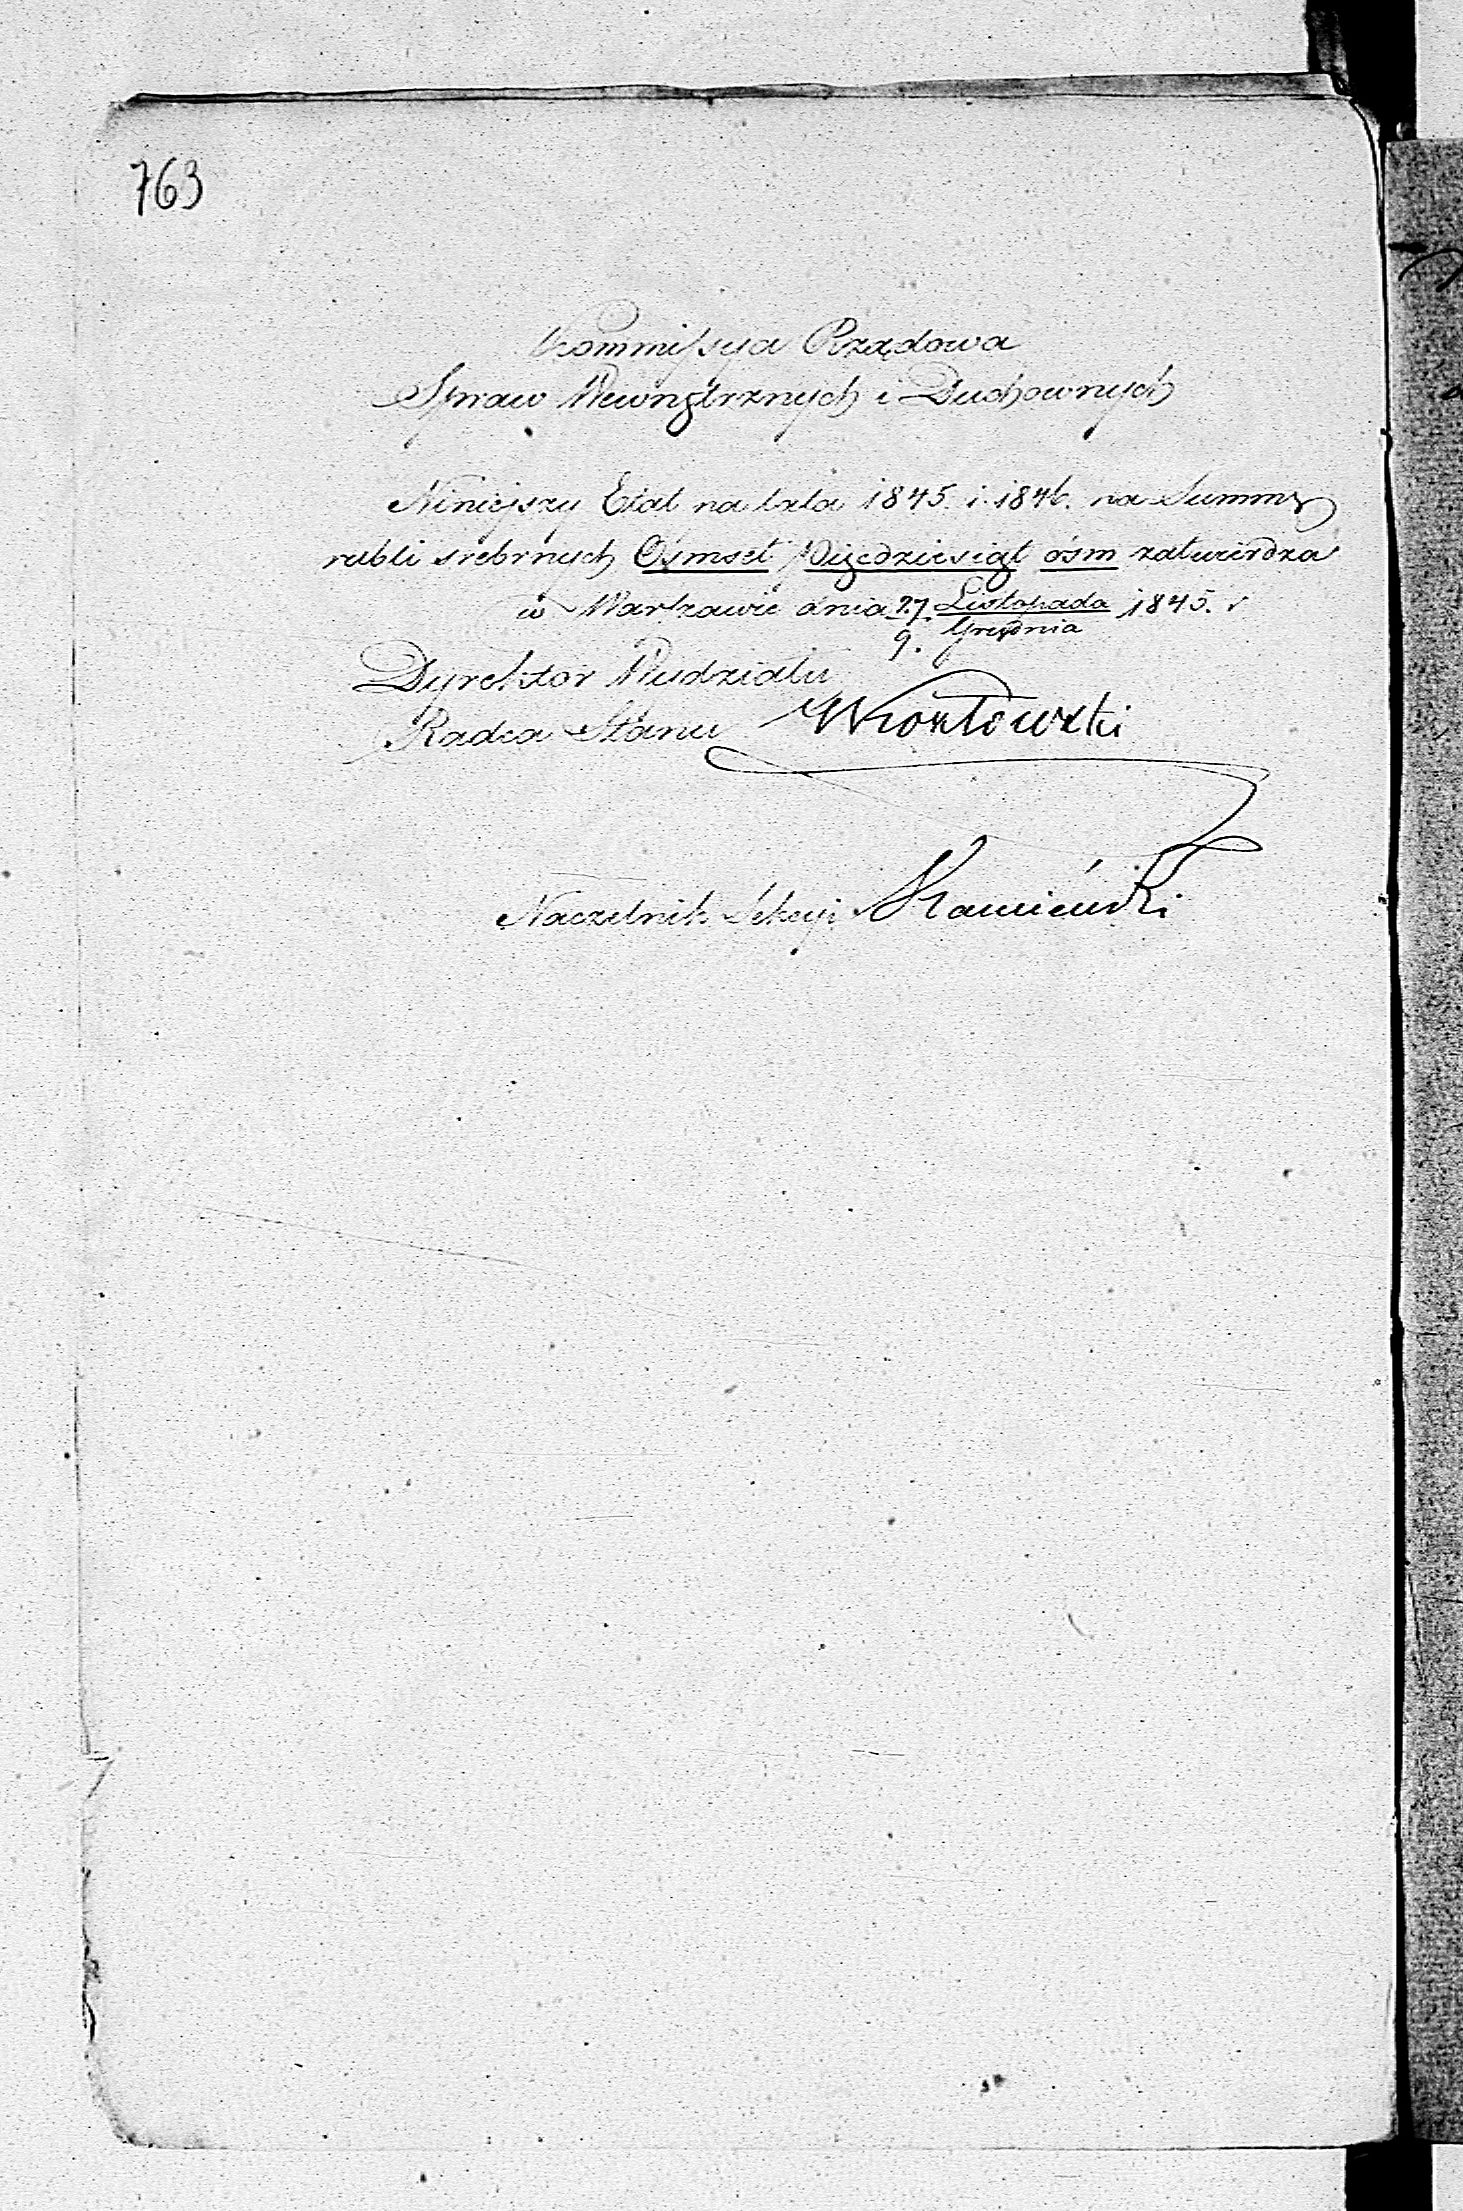 763
Kommissya Rządowa
Spraw Wewnętrznych i Duchownych
Niniejszy Etat na lata 1845. i 1846. na Summę
rubli srebrnych Ośmset Pięćdziesiąt ośm zatwierdza
w Warszawie dnia 27. Listopada 1845. r
9. Grudnia
Dyrektor Wydziału
Radca Stanu
Naczelnik Sekcyi Kamieński